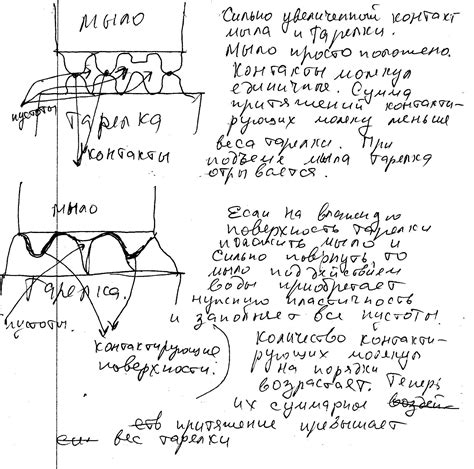 мыло
пустоты
Тарелка
контакты
Сильно увеличенный контакт
мыла и тарелки.
Мыло просто положено.
Контакты молекул
единичные. Сумма
притяжений контакти-
рующих молекул меньше
веса тарелки. При
подъеме мыла тарелка
отрывается.
мыло
Тарелка.
пустоты.
контактирующие
поверхности.
Если на влажную
поверхность тарелки
положить мыло и
сильно повернуть, то
мыло под действием
воды приобретает
нужную пластичность
и заполняет все пустоты.
Количество контакти-
рующих молекул
на порядки
возрастает. Теперь
их суммарное
притяжение превышает
вес тарелки